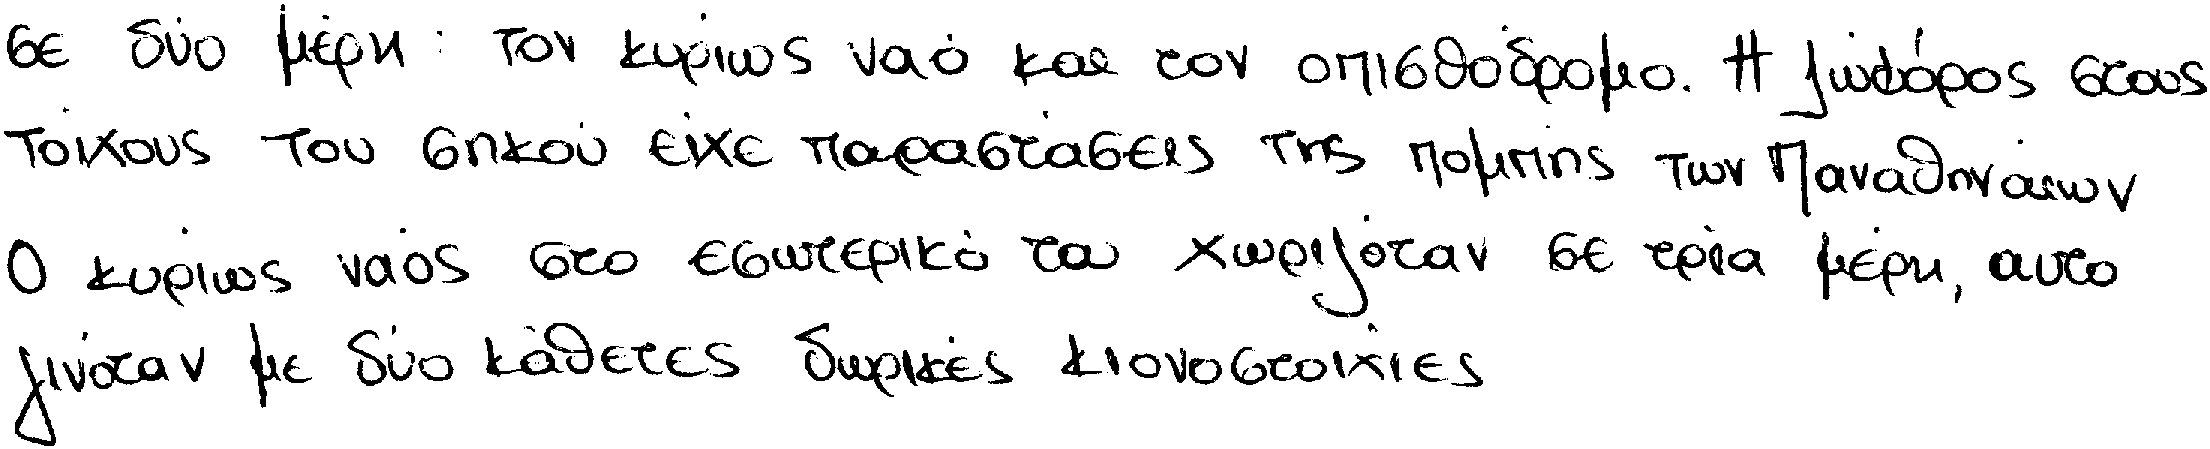 σε δύο μέρη: τον κυρίως ναό και τον οπισθόδρομο. Η ζωφόρος στους
τοίχους του σηκού είχε παραστάσεις της πομπής των Παναθηναίων
Ο κυρίως ναός στο εσωτερικό του χωριζόταν σε τρία μέρη, αυτο
γινόταν με δύο κάθετες δωρικές κιονοστοιχίες